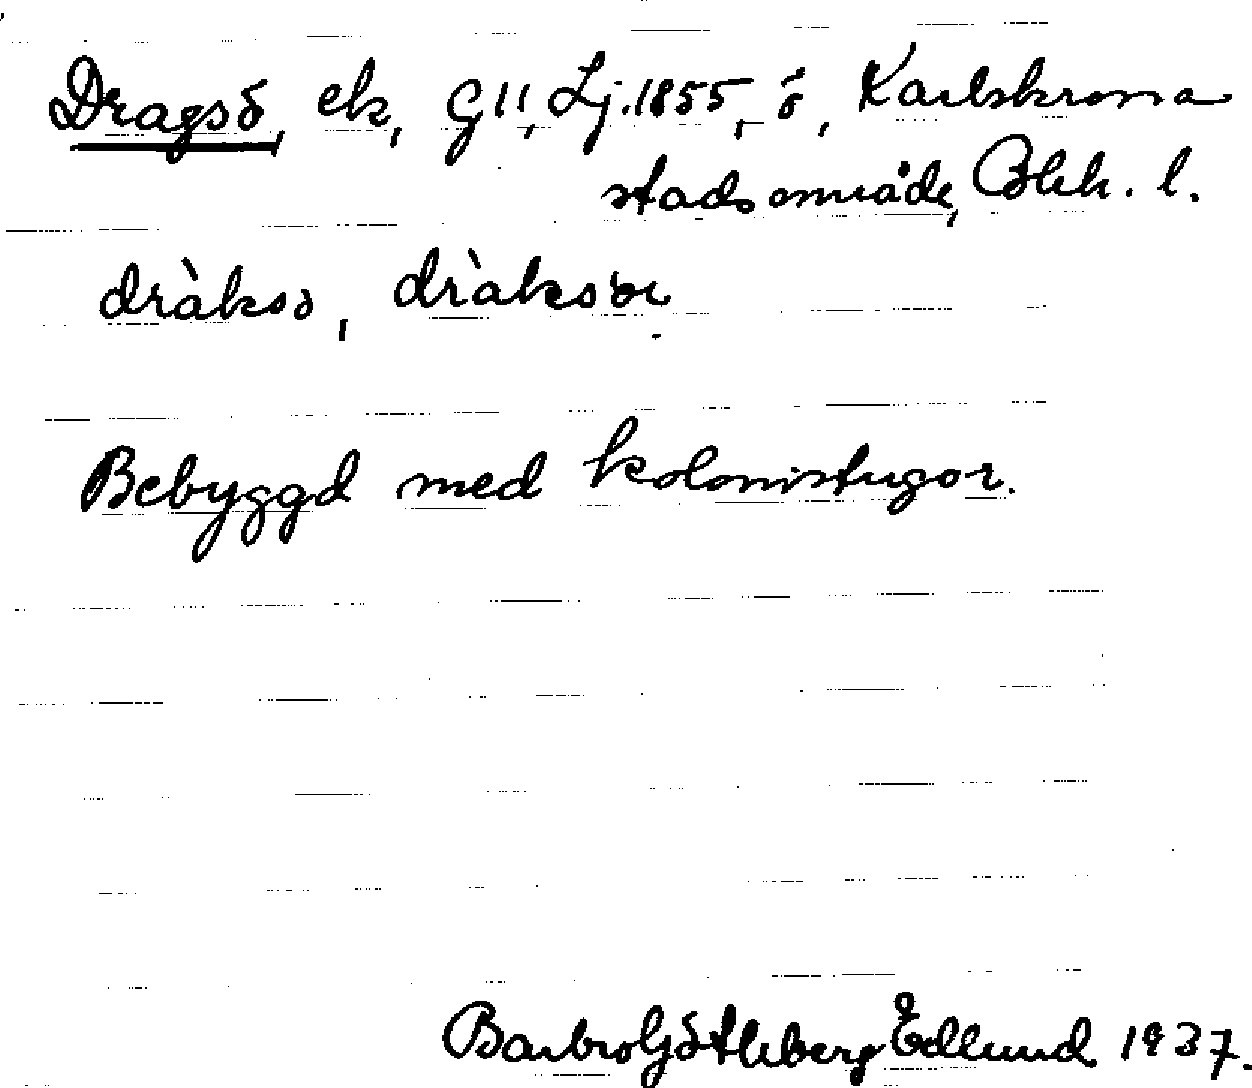 Dragsö, ek, G11, Lj. 1855, ö, Karlskrona
stadsområde, Blek. l.
dràksö, dràksöe
Bebyggd med kolonistugor.
Barbro Götheberg Edlund 1937.